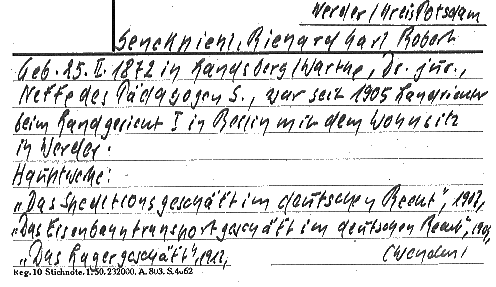 Werder/Kreis Potsdam
Senckpiehl, Richard Carl Robert
Geb. 25. II. 1872 in Landsberg/Warthe, Dr. jur.,
Neffe des Pädagogen S., war seit 1905 Landrichter
beim Landgericht I in Berlin mit dem Wohnsitz
in Werder.
Hauptwerke:
„Das Speditionsgeschäft im deutschen Recht",
„Das Eisenbahntransportgeschäft im deutschen Recht",
„Das Lagergeschäft",
(Wendeni
Reg. 10 Stichnote. 1:50. 232000. A. 803. S. 4062